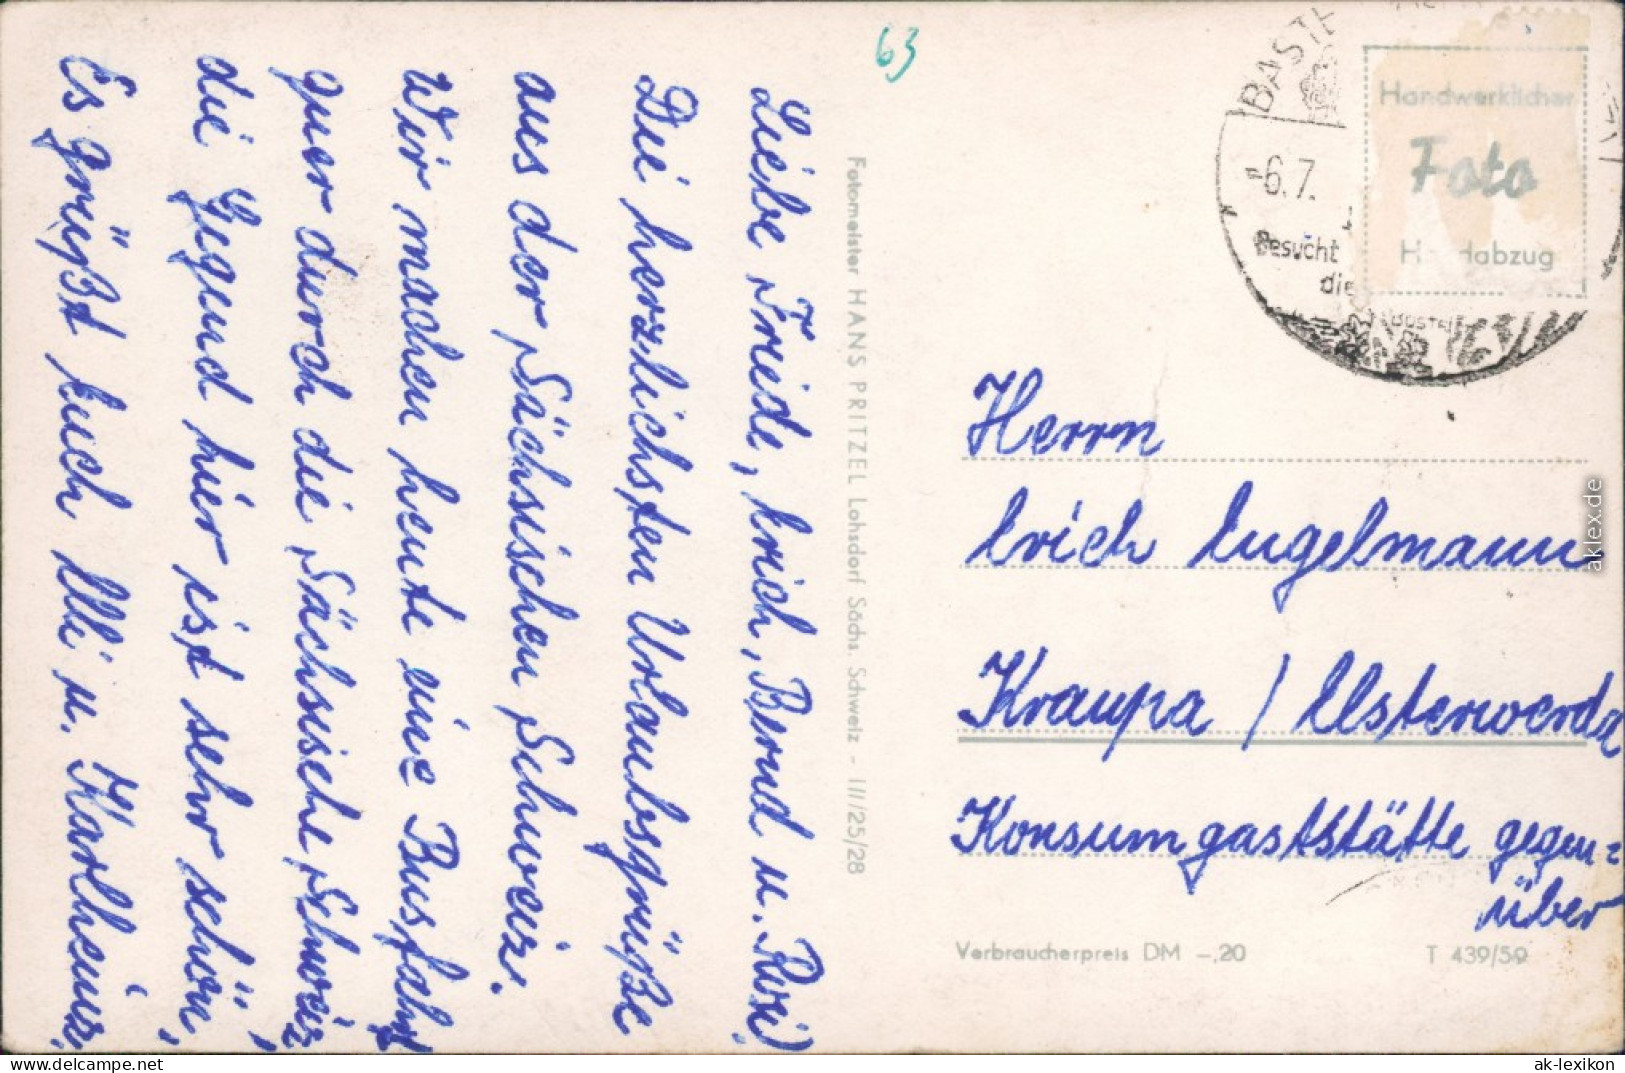 63
Liebe Friede, Erich, Bernd u. Rosi,
Die herzlichsten Urlaubsgrüße
aus der Sächsischen Schweiz.
Wir machen heute eine Busfahrt
quer durch die Sächsische Schweiz,
die Gegend hier ist sehr schön,
Es grüßt Euch Elli u. Karlheinz,
Fotomeister HANS PRITZEL Lohsdorf Sächs. Schweiz - III/25/28
BASTEI
-6.7.
Besucht
die
Bastei
Handwerklicher
Foto
Handabzug
Herrn
Erich Engelmann
Kraupa / Elsterwerda
Konsumgaststätte gegen=
über
Verbraucherpreis DM -,20
T 439/59
aklex.de
https://www.delcampe.net
ak-lexikon